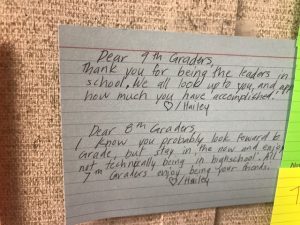 Dear 9th Graders,
Thank you for being the leaders in
school. We all look up to you, and app
how much you have accomplished.
♡/Hailey
Dear 8th Graders,
I know you probably look foreward to
Grade, but stay in the now and enjoy
not technically being in highschool. All
7th Graders enjoy being your friends.
♡/Hailey